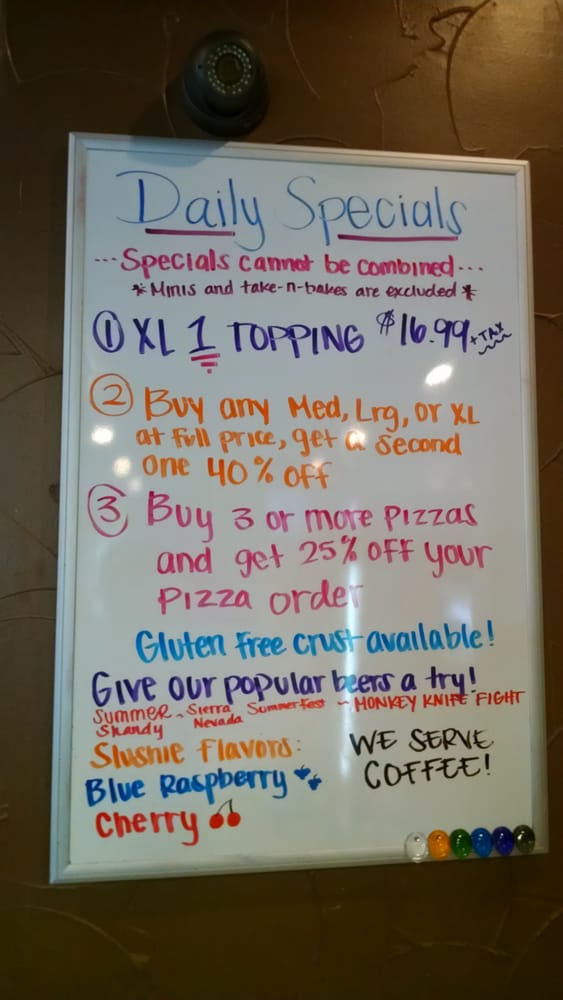 Daily Specials
...Specials cannot be combined...
*Minis and take-n-bakes are excluded*
① XL 1 TOPPING $16.99 + TAX
② Buy any Med, Lrg, or XL
at full price, get a second
one 40% off
③ Buy 3 or more Pizzas
and get 25% off your
Pizza order
Gluten free crust available!
Give our popular beers a try!
Summer Shandy ~ Sierra Nevada Summerfest ~ MONKEY KNIFE FIGHT
Slushie Flavors:
Blue Raspberry
Cherry
WE SERVE
COFFEE!